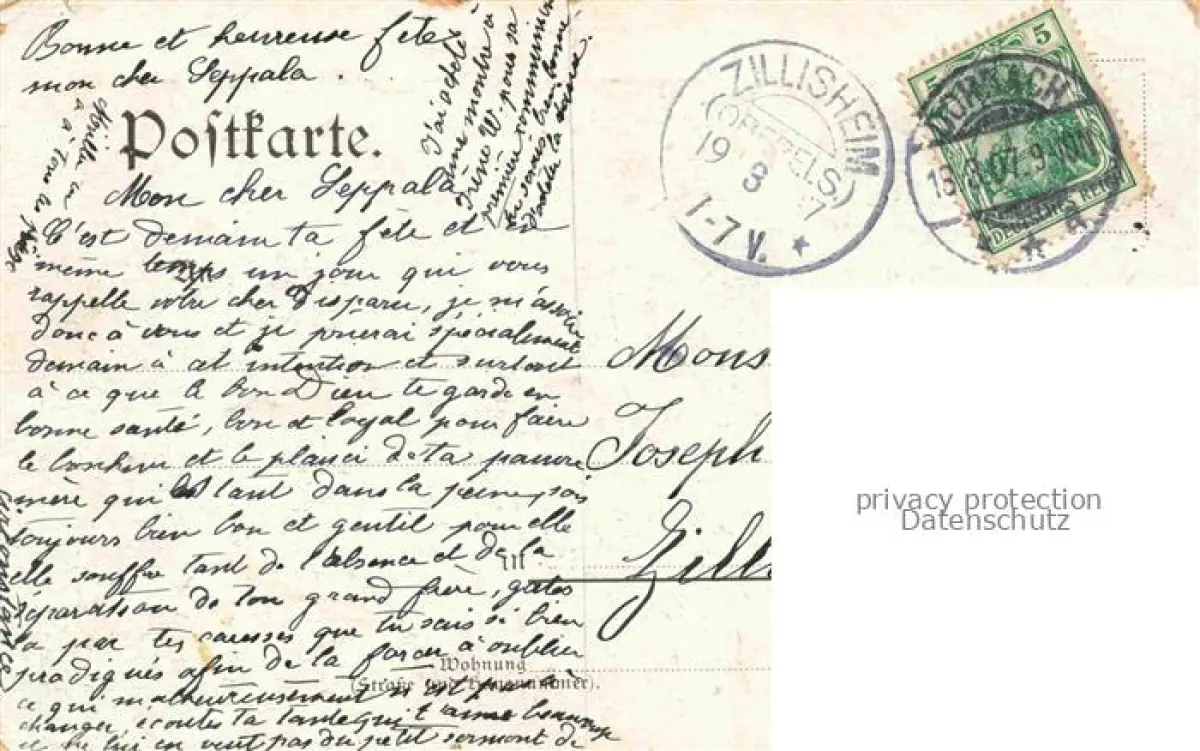 Bonne et heureuse fête
mon cher Seppala.
Postkarte.
J'ai acheté
une montre à
Irène W. pour sa
première communion
tu sais bien
Mon cher Seppala
C'est demain ta fête et en
même temps un jour qui vous
rappelle votre cher Disparu, je m'associe
donc à vous et je prierai spécialement
demain à cet intention et surtout
à ce que le bon Dieu te garde en
bonne santé, bon et loyal pour faire
le bonheur et le plaisir de ta pauvre
mère qui est tant dans la peine, sois
toujours bien bon et gentil pour elle
elle souffre tant de l'absence et de la
séparation de ton grand frère, gates
la par tes caresses que tu sais si bien
prodigués afin de la forcer à oublier
ce qui malheureusement n'est pas à
changer, écoutes ta tante qui t'aime beaucoup
et ne lui en veut pas du petit sermont de
circonstance
ZILLISHEIM
(OBERELS.)
19 3 7
1-7 V.
DORNACH
07.9
5
5
DEUTSCHES REICH
Mons
Joseph
in
Zill
Wohnung
(Straße und Hausnummer).
privacy protection
Datenschutz